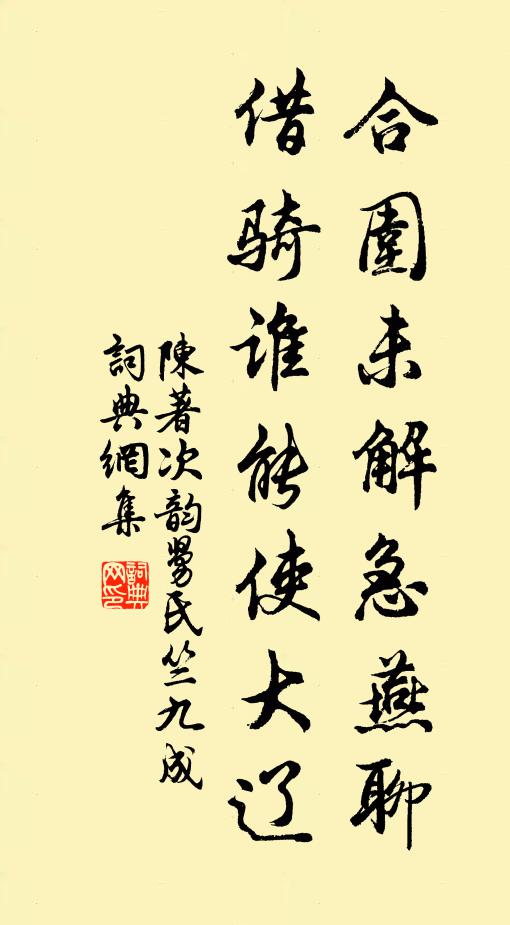 合圍未解急燕聊
借騎誰能使大辽
陳著次韵舅氏竺九成
詞典網集
詞典网印